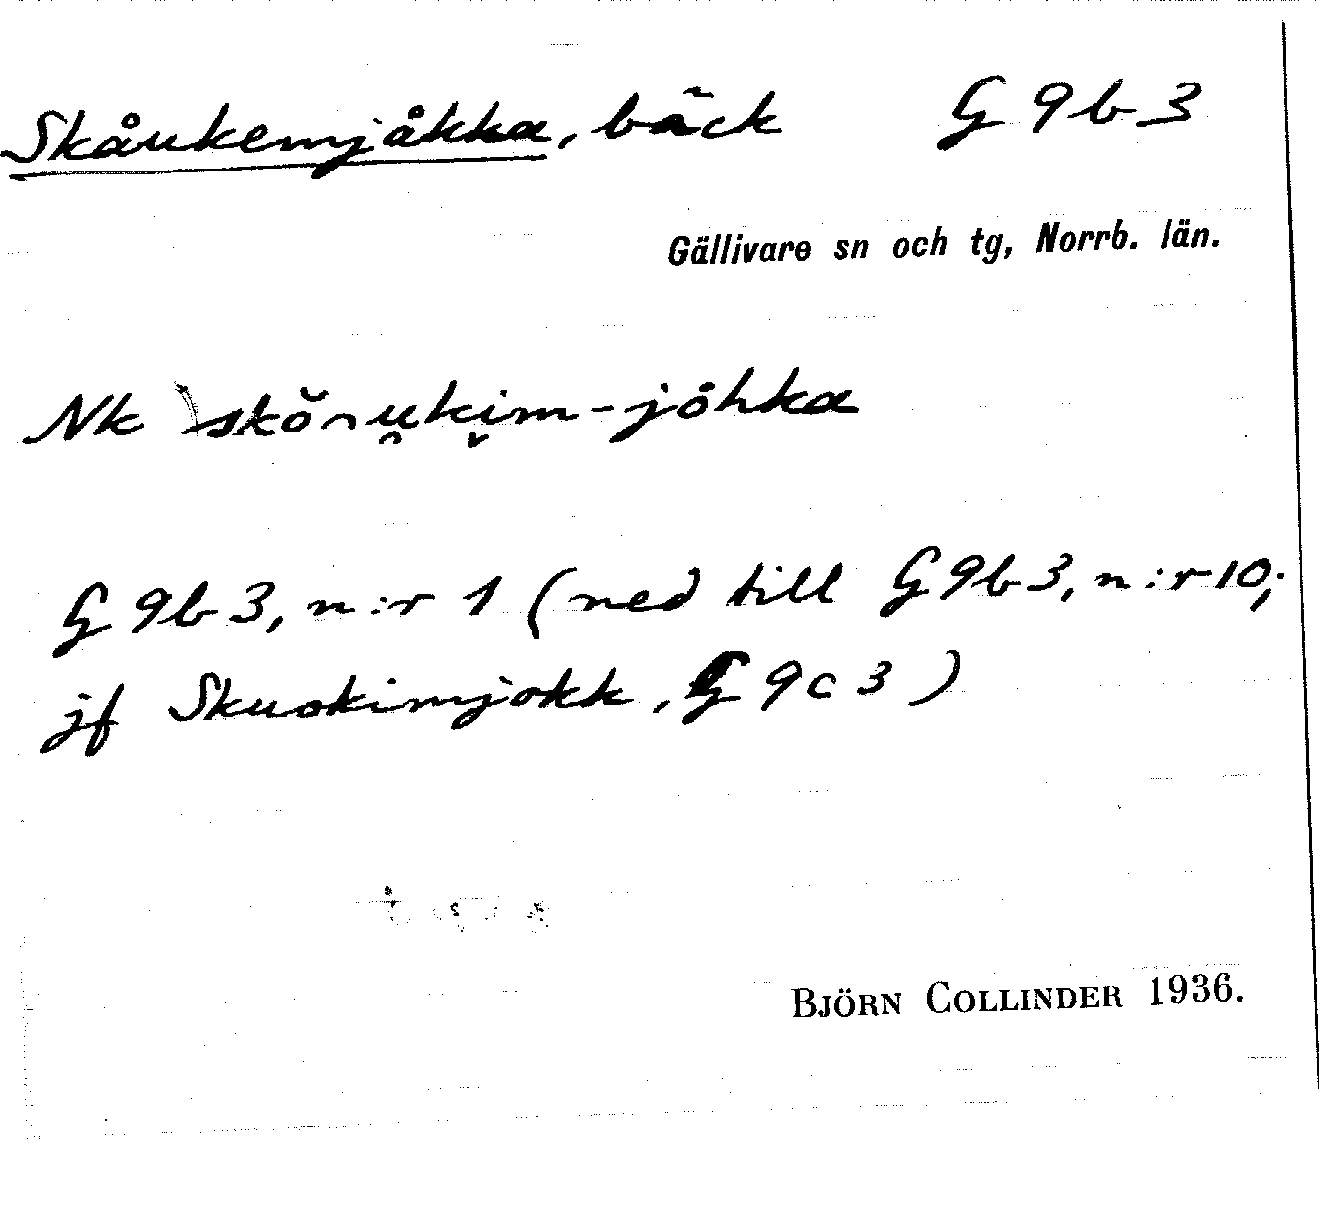 Skåukemjåkka, bäck G 9 b 3
Gällivare sn och tg, Norrb. län.
Nk skŏ̀ᴖu̯kim-jȯhka
G 9 b 3, n:r 1 (ned till G 9 b 3, n:r 10;
jf Skuokimjokk, G 9 c 3)
BJÖRN COLLINDER 1936.